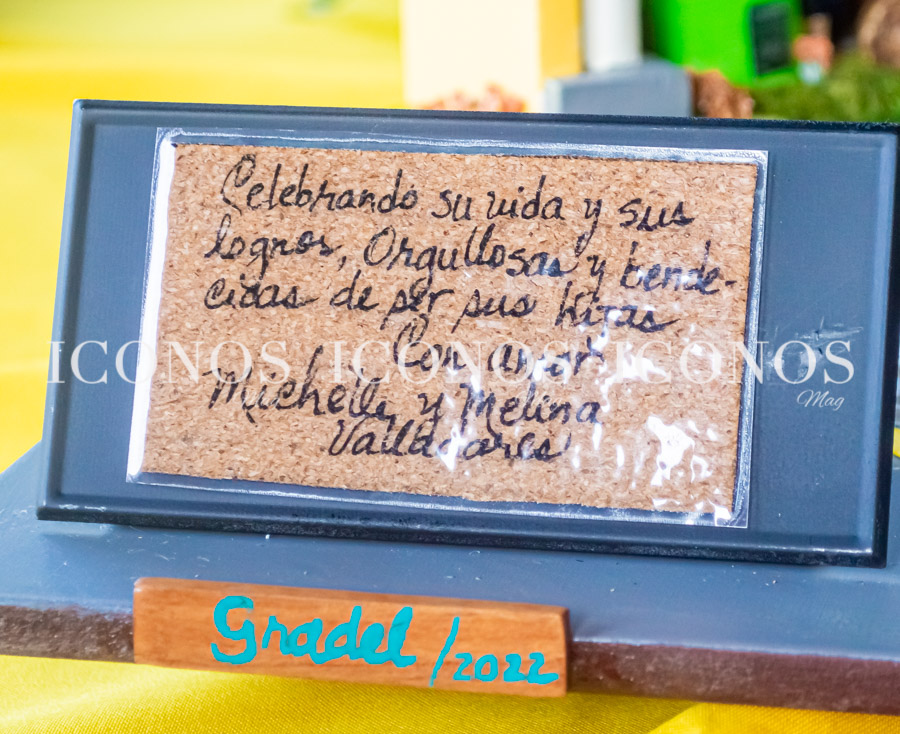 Celebrando su vida y sus
logros, Orgullosas y bende-
cidas de ser sus hijas
Con amor
Michelle y Melina
Valladares
ICONOS ICONOS ICONOS
Mag
Gradel/2022